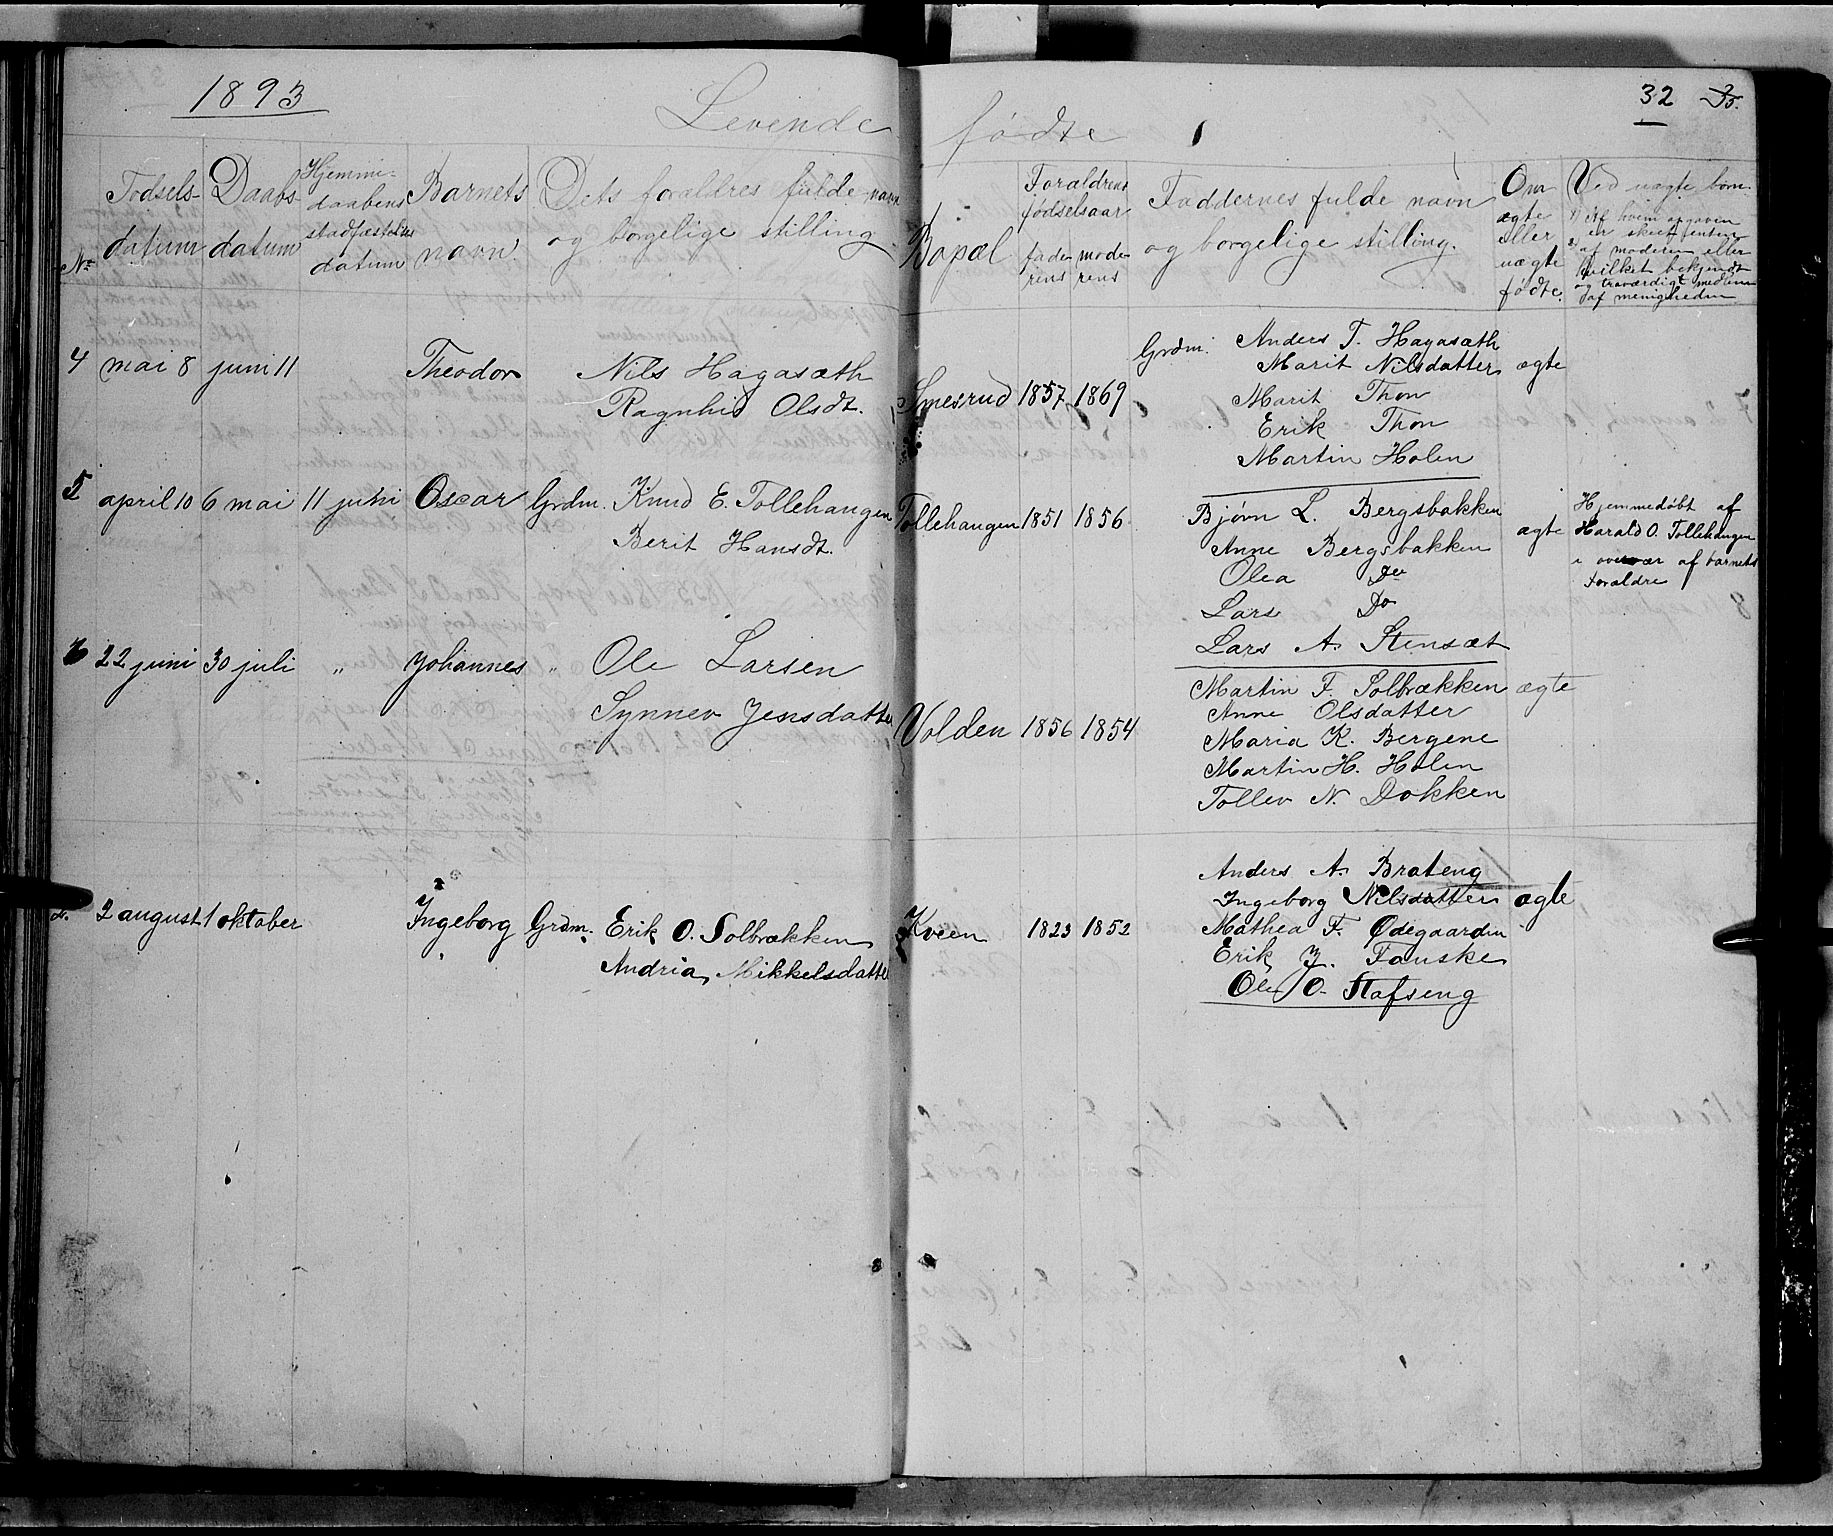 1893
Levende fødte
32 35.
No
Fødsels-datum
Daabs-datum
Hjemme-daabens stadfæstelses datum
Barnets navn
Dets forældres fulde navn og borgelige stilling
Bopæl
Forældrenes fødselsaar
faderens moderens
Faddernes fulde navn og borgelige stilling.
Om ægte eller uægte fødte.
Ved uægte børn
1) Af hvem opgaven er skeet enten
2) af moderen eller hvilket bekjendt og troværdigt medlem af menigheden
4 mai 8 juni 11 Theodor Nils Hagasæth
Ragnhid Olsdt.
Smesrud 1857 1869
Grdm. Anders T. Hagasæth
Marit Nilsdatter ægte
Marit Thon
Erik Thon
Martin Holen
5 april 10 6 mai 11 juni Oscar Grdm. Knud E. Tollehaugen
Berit Hansdt.
Tollehaugen 1851 1856
Bjørn L. Bergsbakken
Anne Bergsbakken ægte
Olea Do
Lars Do
Lars A. Stensæt
Hjemmedøbt af
Harald O. Tollehaugen
i overvær af barnets
forældre
6 22 juni 30 juli " Johannes " Ole Larsen
Synnev Jensdatter
Volden 1856 1854
Martin F. Solbrækken ægte
Anne Olsdatter
Maria K. Bergene
Martin H. Holen
Tollev N. Dokken
2 august 1 oktober Ingeborg Grdm. Erik O. Solbrækken
Andria Mikkelsdatter
Kveen 1823 1852
Anders A. Brateng
Ingeborg Nilsdatter ægte
Mathea F. Ødegaarden
Erik J. Fauske
Ole O. Stafseng